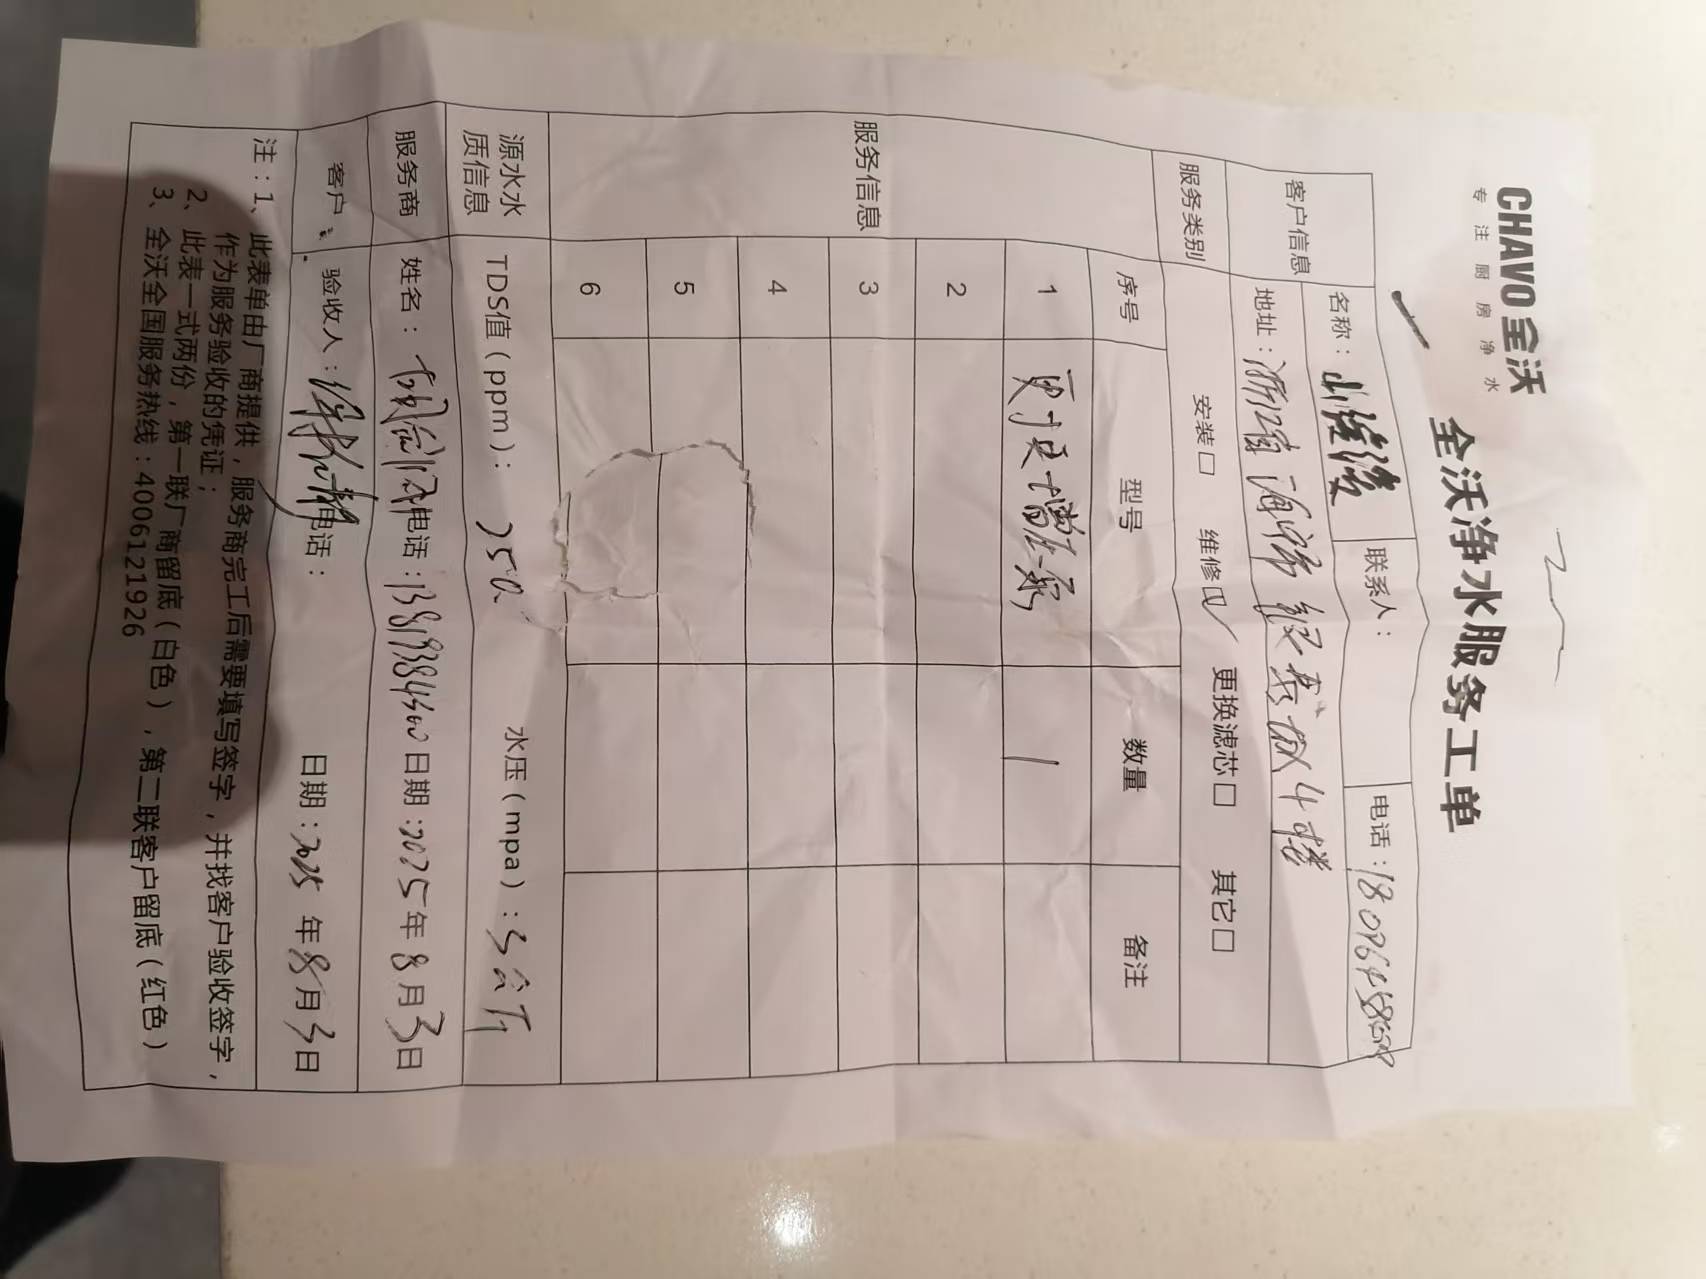 CHAVO 全沃
专注厨房净水
全沃净水服务工单
客户信息 名称： 联系人： 电话：
地址：浙江省海宁市银泰城4楼
服务类别 安装□ 维修☑ 更换滤芯□ 其它□
服务信息 序号 型号 数量 备注
1 1
2
3
4
5
6
源水水质信息 TDS值（ppm）：250 水压（mpa）：3公斤
服务商 姓名： 电话： 日期：2025年8月3日
客户 验收人： 电话： 日期：2025年8月3日
注：1、此表单由厂商提供，服务商完工后需要填写签字，并找客户验收签字，
作为服务验收的凭证；
2、此表一式两份，第一联厂商留底（白色），第二联客户留底（红色）
3、全沃全国服务热线：4006121926